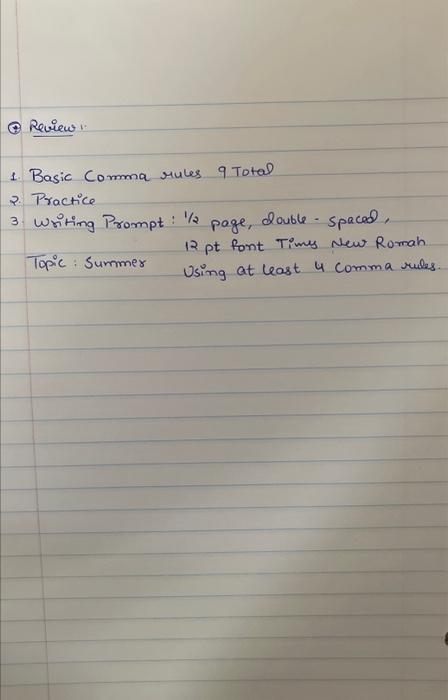 ⊛ Review :
1. Basic Comma rules 9 Total
2. Practice
3. Writing Prompt : 1/2 page, double - spaced,
12 pt font Times New Roman
Topic : Summer Using at least 4 comma rules.